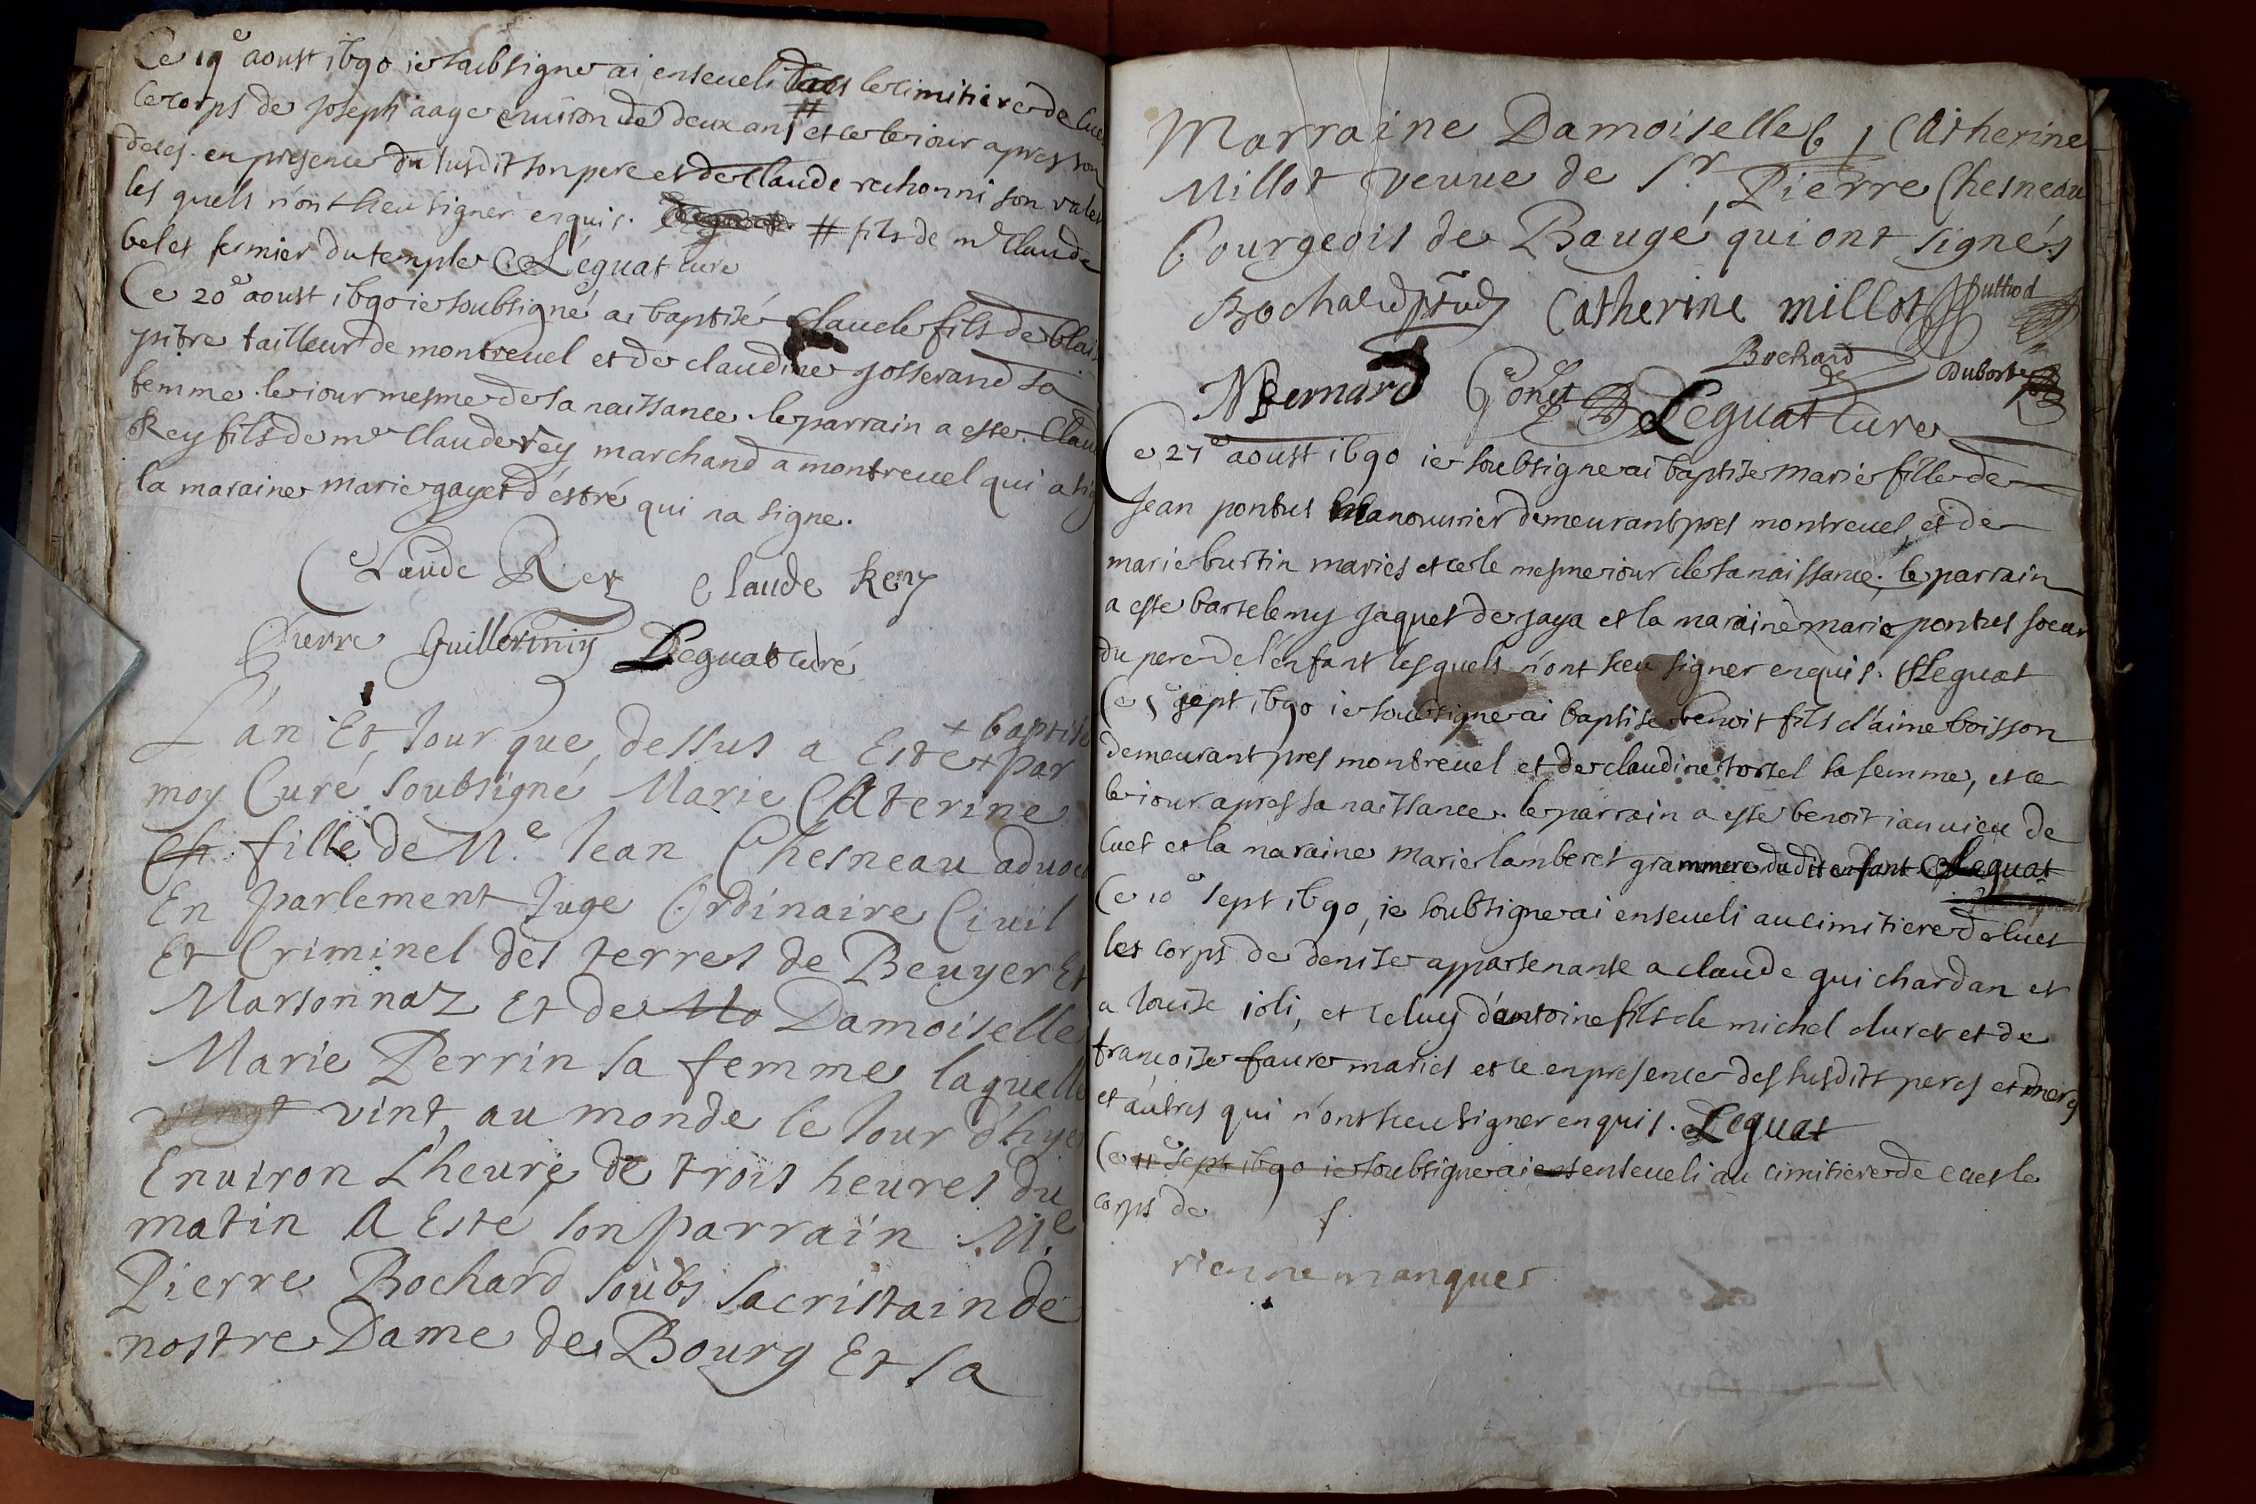 Ce 19e aoust 1690 ie soubsigne ai enseueli dans le cimitiere de cuet
le corps de joseph aage enuiron de deux ans # et ce le iour apres son
deces en presence du susdit son pere et de claude rechonni son valet
les quels n'ont sceu signer enquis. # fils de mr Claude
belet fermier du temple Leguat Curé
Ce 20e aoust 1690 ie soubsigné ai baptisé Claude fils de blai
pitre tailleur de montreuel et de claudine josserand sa
femme le iour mesme de sa naissance. le parrain a esté Clau
Rey fils de mr Claude rey marchand a montreuel qui a sig
la maraine marie gayet d'estré qui na signe.
Claude Rey Claude Rey
Pierre Guillermin Leguat curé
L'an Et Jour que dessus a Esté + baptisé + par
moy Curé soubsigné Marie CAterine
Ch fille de Me Jean Chesneau aduoc
En parlement Juge Ordinaire Ciuil
Et Criminel des terres de Beuyer Et
Marsonnaz Et de Ma Damoiselle
Marie Perrin sa femme laquelle
vingt vint au monde le Jour d'hyer
Enuiron L'heure de trois heures du
matin A Esté son parrain Me
Pierre Bochard soubs sacristain de
nostre Dame de Bourg Et sa
Marraine Damoiselle CAtherine
Millot veuue de Sr Pierre Chesneau
Bourgeois de Baugé qui ont signés
Bochard Catherine millot
Bochard Dubost
NBernard Gonet Leguat Curé
Ce 27e aoust 1690 ie soubsigne ai baptise marie fille de
Jean pontus manouurier demeurant pres montreuel, et de
marie burtin mariés et ce le mesme iour de sa naissance. le parrain
a esté bartelemy jaquet de jaya et la maraine marie pontus soeur
du pere de l'enfant lesquels n'ont sceu signer enquis. Leguat
Ce 5e sept 1690 ie soubsigne ai baptise benoit fils d'aime boisson
demeurant pres montreuel et de claudine tortel sa femme, et ce
le iour apres sa naissance. le parrain a esté benoit ianuieu de
cuet et la maraine marie lamberet grammere dudit enfant Leguat
Ce 10e sept 1690, ie soubsigne ai enseueli au cimitiere de cuet
les corps de denise appartenante a claude guichardan et
a louise ioli, et celuy d'antoine fils de michel duret et de
francoise faure mariés et ce en presence des susdits peres et meres
et autres qui n'ont sceu signer enquis. Leguat
Ce 11e sept 1690 ie soubsigne ai enseueli au cimitiere de cuet le
corps de
rien ne manque